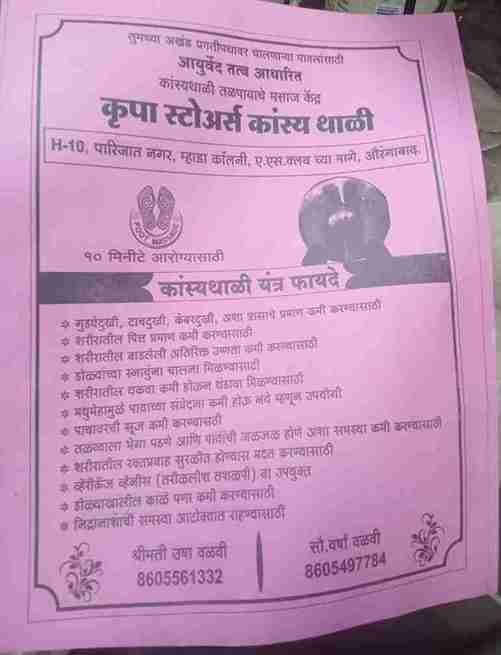 तुमच्या अखंड प्रगतीपथावर चालणाऱ्या पावलांसाठी
आयुर्वेद तत्व आधारित
कांस्यथाळी तळपायाचे मसाज केंद्र
कृपा स्टोअर्स कांस्य थाळी
H-10, पारिजात नगर, म्हाडा कॉलनी, ए.एस.क्लब च्या मागे, औरंगाबाद.
FOOT MASSAGE
१० मिनीटे आरोग्यासाठी
कांस्यथाळी यंत्र फायदे
* गुडघेदुखी, टाचदुखी, कंबरदुखी, अशा त्रासाचे प्रमाण कमी करण्यासाठी
* शरीरातील पित्त प्रमाण कमी करण्यासाठी
* शरीरातील वाढलेली अतिरिक्त उष्णता कमी करण्यासाठी
* डोळ्यांच्या स्नायुंना चालना मिळण्यासाठी
* शरीरातील थकवा कमी होऊन थंडावा मिळण्यासाठी
* मधुमेहामुळे पायाच्या संवेदना कमी होऊ नये म्हणून उपयोगी
* पायावरची सूज कमी करण्यासाठी
* तळव्याला भेगा पडणे आणि पायांची जळजळ होणे अशा समस्या कमी करण्यासाठी
* शरीरातील रक्तप्रवाह सुरळीत होण्यास मदत करण्यासाठी
* व्हेरीकोज व्हेनीस वर उपयुक्त
* डोळ्याखालील काळे पणा कमी करण्यासाठी
* निद्रानाशाची समस्या आटोक्यात राहण्यासाठी
श्रीमती उषा वळवी
8605561332
सौ.वर्षा वळवी
8605497784